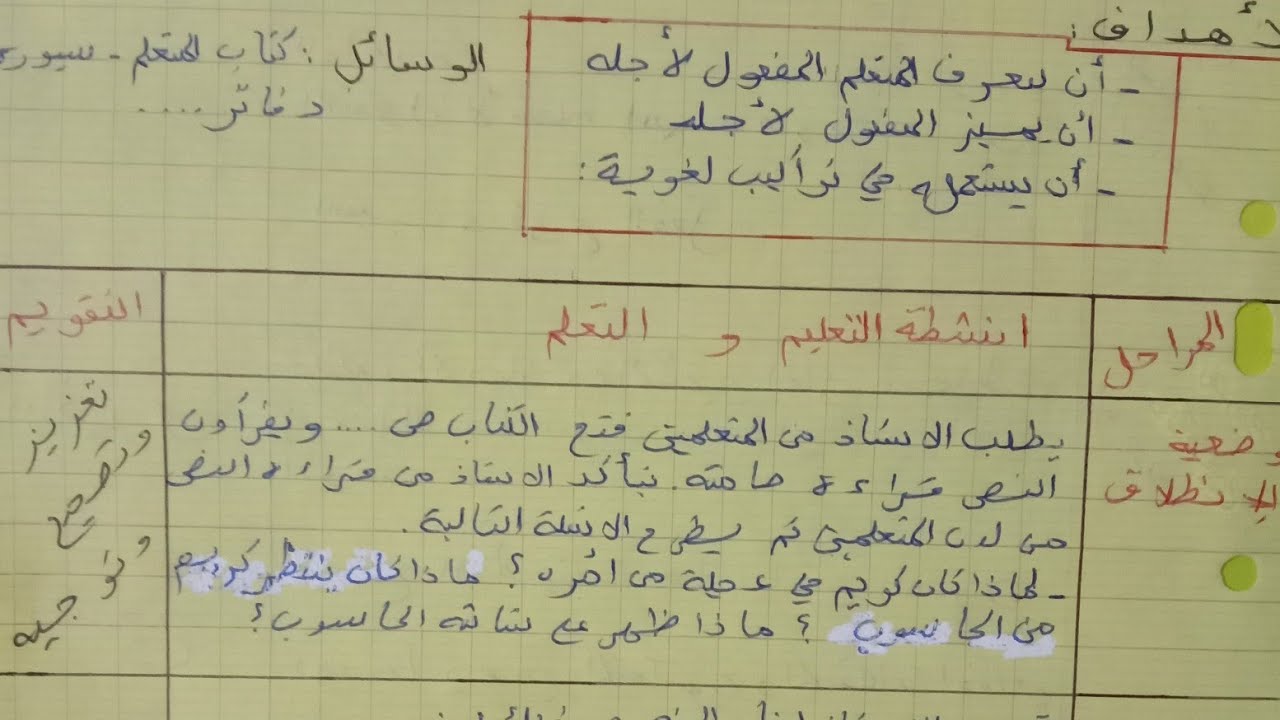 الأهداف:
- أن يتعرف المتعلم المفعول لأجله
- أن يميز المفعول لأجله
- أن يستعمله في تراكيب لغوية:
الوسائل: كتاب المتعلم - سبورة
دفاتر ....
المراحل
انشطة التعليم و التعلم
التقويم
وضعية
الإنطلاق
يطلب الاستاذ من المتعلمين فتح الكتاب ص .... ويقرأون
النص قراءة صامتة. يتأكد الاستاذ من قراءة النص
من لدن المتعلمين ثم يطرح الاسئلة التالية.
- لماذا كان كريم في عجلة من أمره؟ ماذا كان ينتظر كريم
من الحاسوب؟ ماذا ظهر على شاشة الحاسوب؟
تعزيز
وتصحيح
وتوجيه